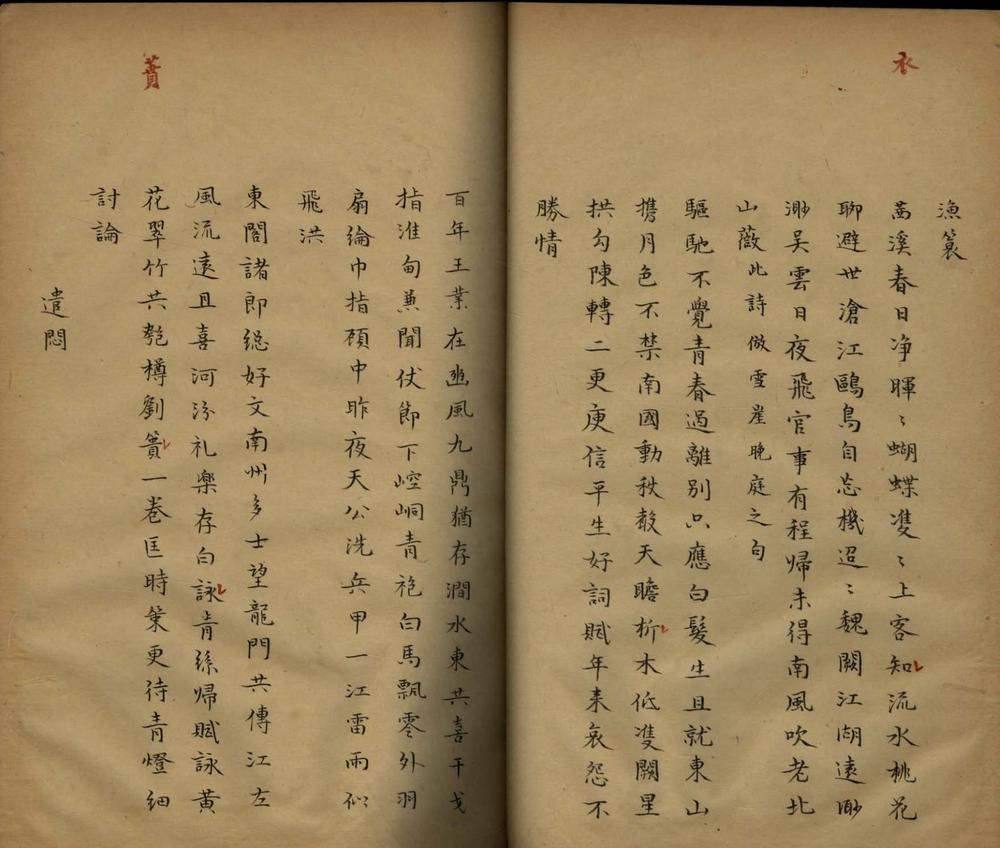 衣
漁簑
苕溪春日净暉〻蝴蝶㕠〻上客知流水桃花
聊避世滄江鷗鳥自忘機迢〻魏闕江湖遠渺
渺吴雲日夜飛官事有程帰未得南風吹老北
山薇此詩倣雪崖晚庭之句
驅馳不覺青春過離別只應白髮生且就東山
携月色不禁南國動秋聲天瞻析木低㕠闕星
拱勾陳轉二更庾信平生好詞賦年来哀怨不
勝情
蕡
百年王業在豳風九鼎猶存澗水東共喜干戈
指淮甸兼聞伏節下崆峒青袍白馬飄零外羽
扇綸巾指顧中昨夜天公洗兵甲一江雷雨似
飛洪
東閣諸郎総好文南州多士望龍門共傳江左
風流遠且喜河汾礼樂存白詠肯絲帰賦詠黄
花翠竹共匏樽劉蕡一卷匡時策更待青燈細
討論
遣悶